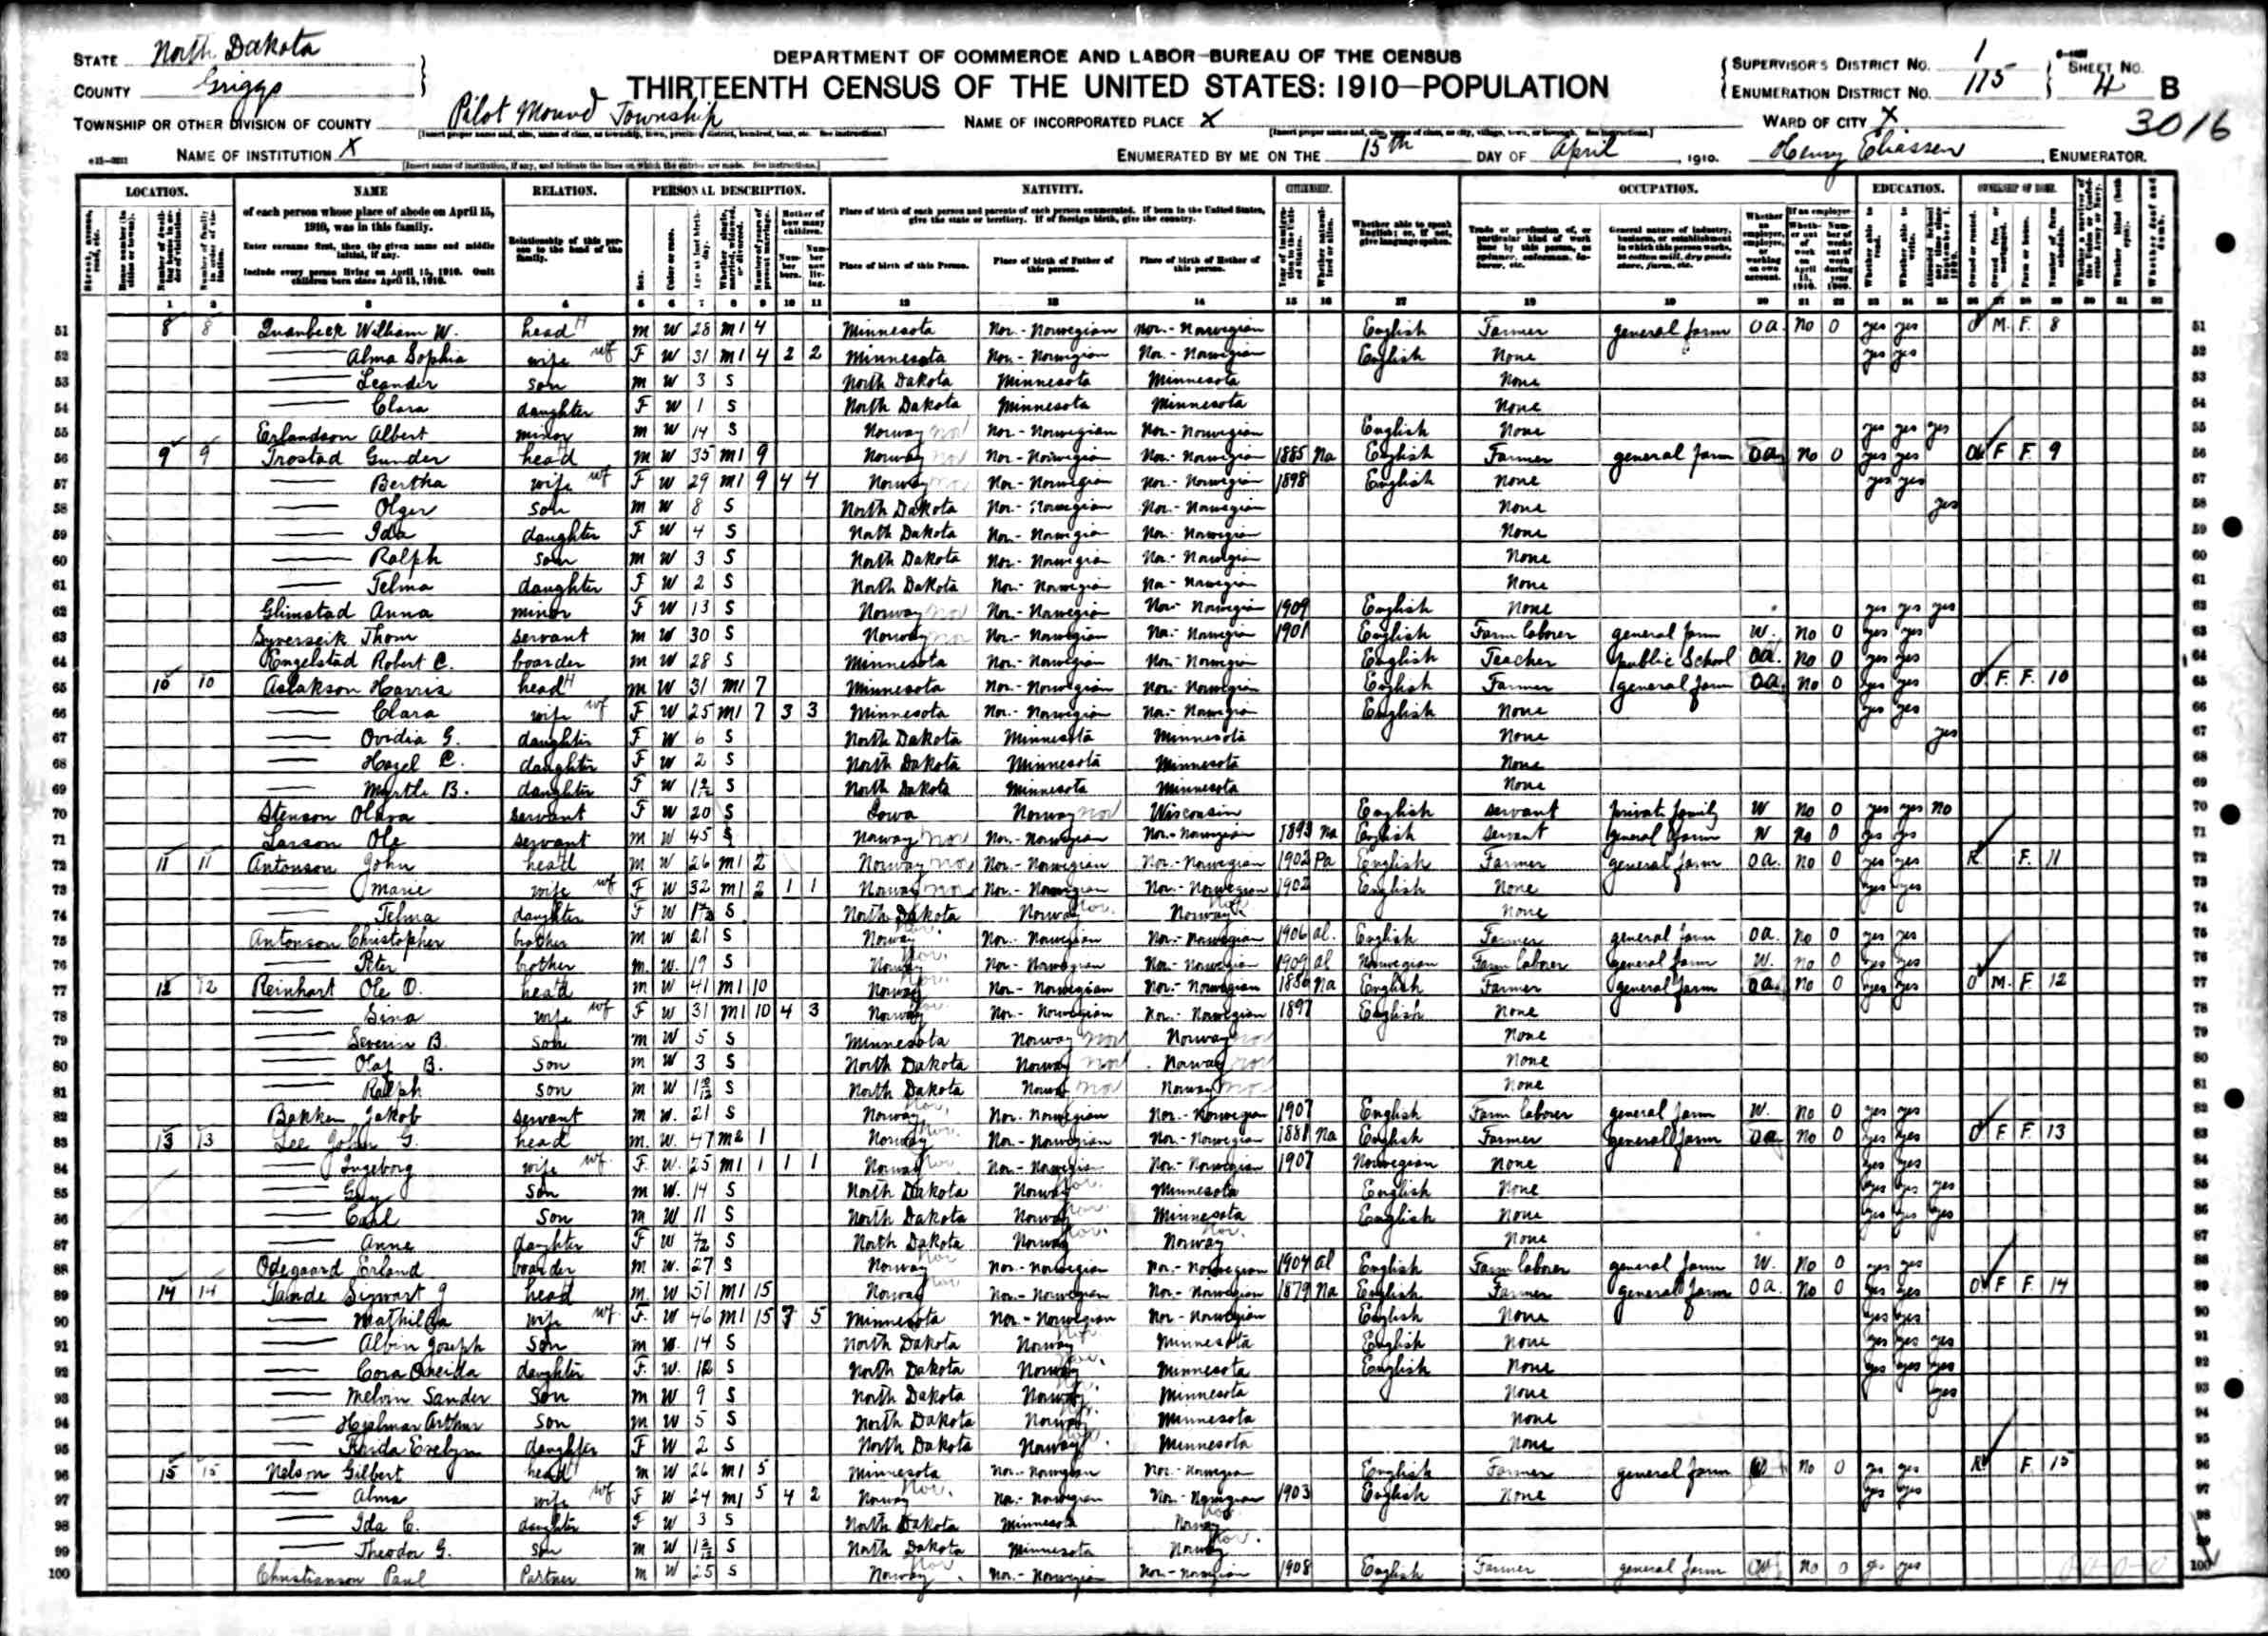 STATE North Dakota
COUNTY Griggs
TOWNSHIP OR OTHER DIVISION OF COUNTY Pilot Mound Township
NAME OF INSTITUTION X
DEPARTMENT OF COMMERCE AND LABOR—BUREAU OF THE CENSUS
THIRTEENTH CENSUS OF THE UNITED STATES: 1910—POPULATION
NAME OF INCORPORATED PLACE X
ENUMERATED BY ME ON THE 15th DAY OF April, 1910. Henry Eliassen, ENUMERATOR.
SUPERVISOR'S DISTRICT No. 1
ENUMERATION DISTRICT No. 115
SHEET No. 4 B
WARD OF CITY X
3016
LOCATION. NAME RELATION. PERSONAL DESCRIPTION. NATIVITY. CITIZENSHIP. OCCUPATION. EDUCATION. OWNERSHIP OF HOME.
of each person whose place of abode on April 15, 1910, was in this family.
Enter surname first, then the given name and middle initial, if any.
Include every person living on April 15, 1910. Omit children born since April 15, 1910.
Relationship of this person to the head of the family.
Place of birth of this Person. Place of birth of Father of this person. Place of birth of Mother of this person.
51 8 8 Quanbeck William W. head m W 28 m1 4 Minnesota Nor.-Norwegian Nor.-Norwegian English Farmer general farm OA no 0 yes yes O M. F. 8 51
52 Alma Sophia wife F W 31 m1 4 2 2 Minnesota Nor.-Norwegian Nor.-Norwegian English None yes yes 52
53 Leander son m W 3 S North Dakota Minnesota Minnesota None 53
54 Clara daughter F W 1 S North Dakota Minnesota Minnesota None 54
55 Erlandson Albert minor m W 14 S Norway Nor.-Norwegian Nor.-Norwegian English None yes yes yes 55
56 9 9 Trostad Gunder head m W 35 m1 9 Norway Nor-Norwegian Nor.-Norwegian 1885 Na English Farmer general farm OA no 0 yes yes O F F 9 56
57 Bertha wife F W 29 m1 9 4 4 Norway Nor-Norwegian Nor.-Norwegian 1898 English None yes yes 57
58 Olger son m W 8 S North Dakota Nor-Norwegian Nor.-Norwegian None yes 58
59 Ida daughter F W 4 S North Dakota Nor.-Norwegian Nor.-Norwegian None 59
60 Ralph son m W 3 S North Dakota Nor.-Norwegian Nor.-Norwegian None 60
61 Telma daughter F W 2 S North Dakota Nor.-Norwegian Nor-Norwegian None 61
62 Glimstad Anna minor F W 13 S Norway Nor.-Norwegian Nor-Norwegian 1909 English None yes yes yes 62
63 Thom servant m W 30 S Norway Nor.-Norwegian Nor.-Norwegian 1901 English Farm laborer general farm W. no 0 yes yes 63
64 Engelstad Robert C. boarder m W 28 S Minnesota Nor.-Norwegian Nor-Norwegian English Teacher public School OA. no 0 yes yes 64
65 10 10 Aslakson Harris head m W 31 m1 7 Minnesota Nor.-Norwegian Nor.-Norwegian English Farmer general farm OA no 0 yes yes O F. F. 10 65
66 Clara wife F W 25 m1 7 3 3 Minnesota Nor.-Norwegian Nor.-Norwegian English None yes yes 66
67 Ovidia G. daughter F W 6 S North Dakota Minnesota Minnesota None yes 67
68 Hazel C. daughter F W 2 S North Dakota Minnesota Minnesota None 68
69 Myrtle B. daughter F W S North Dakota Minnesota Minnesota None 69
70 Stenson Olava servant F W 20 S Iowa Norway Wisconsin English servant private family W no 0 yes yes no 70
71 Larson Ole servant m W 45 S Norway Nor.-Norwegian Nor.-Norwegian 1893 Na English servant general farm W no 0 yes yes 71
72 11 11 Antonson John head m W 26 m1 2 Norway Nor.-Norwegian Nor.-Norwegian 1902 Pa English Farmer general farm OA. no 0 yes yes R F. 11 72
73 Marie wife F W 32 m1 2 1 1 Norway Nor.-Norwegian Nor.-Norwegian 1902 English None yes yes 73
74 Telma daughter F W S North Dakota Norway Norway None 74
75 Antonson Christopher brother m W 21 S Norway Nor.-Norwegian Nor.-Norwegian 1906 al. English Farmer general farm OA. no 0 yes yes 75
76 Peter brother m. W. 19 S Norway Nor-Norwegian Nor.-Norwegian 1909 al Norwegian Farm laborer general farm W. no 0 yes yes 76
77 12 12 Reinhart Ole O. head m W 41 m1 10 Norway Nor-Norwegian Nor.-Norwegian Na English Farmer general farm OA no 0 yes yes O M. F. 12 77
78 Sina wife F W 31 m1 10 4 3 Norway Nor.-Norwegian Nor.-Norwegian 1897 English None 78
79 Severin B. son m W 5 S Minnesota Norway Norway None 79
80 Olaf B. son m W 3 S North Dakota Norway Norway None 80
81 Ralph son m W S North Dakota Norway Norway None 81
82 Bakken Jakob servant m W. 21 S Norway Nor.-Norwegian Nor.-Norwegian 1907 English Farm laborer general farm W. no 0 yes yes 82
83 13 13 Lee John G. head m. W. 47 m2 1 Norway Nor.-Norwegian Nor.-Norwegian 1881 Na English Farmer general farm OA no 0 yes yes O F. F. 13 83
84 Ingeborg wife F. W. 25 m1 1 1 1 Norway Nor.-Norwegian Nor.-Norwegian 1907 Norwegian None yes yes 84
85 Guy son m W. 14 S North Dakota Norway Minnesota English None yes yes yes 85
86 Earl son m W 11 S North Dakota Norway Minnesota English None yes yes yes 86
87 Anne daughter F W S North Dakota Norway Norway None 87
88 Odegaard Erland boarder m W. 27 S Norway Nor.-Norwegian Nor.-Norwegian 1904 al English Farm laborer general farm W. no 0 yes yes 88
89 14 14 Tande Sigwart J head m. W 51 m1 15 Norway Nor.-Norwegian Nor.-Norwegian 1879 Na English Farmer general farm OA. no 0 yes yes O F F. 14 89
90 Mathilda wife F. W 46 m1 15 7 5 Minnesota Nor.-Norwegian Nor-Norwegian English None yes yes 90
91 Albin Joseph son m W. 14 S North Dakota Norway Minnesota English None yes yes yes 91
92 Cora Oneida daughter F. W. 12 S North Dakota Norway Minnesota English None yes yes yes 92
93 Melvin Sander son m W 9 S North Dakota Norway Minnesota None yes 93
94 Hjalmar Arthur son m W 5 S North Dakota Norway Minnesota None 94
95 Evelyn daughter F W 2 S North Dakota Norway Minnesota None 95
96 15 15 Nelson Gilbert head m W 26 m1 5 Minnesota Nor.-Norwegian Nor-Norwegian English Farmer general farm no 0 yes yes R F. 15 96
97 Alma wife F W 24 m1 5 4 2 Norway Nor.-Norwegian Nor.-Norwegian 1903 English None yes yes 97
98 Ida C. daughter F W 3 S North Dakota Minnesota Norway 98
99 Theodor G. son m W S North Dakota Minnesota Norway 99
100 Christianson Paul Partner m W 25 S Norway Nor.-Norwegian Nor-Norwegian 1908 English Farmer general farm no 0 yes yes 100